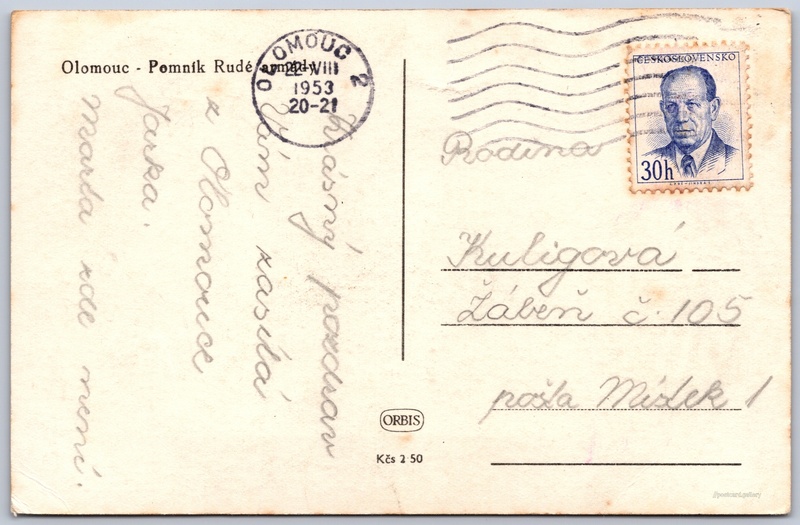 Olomouc - Pomník Rudé armády
OLOMOUC 2
22 VIII
1953
20-21
ČESKOSLOVENSKO
30h
Krásný pozdrav
Vám zasílá
z Olomouce
Jarka.
Marta zde není.
Rodina
Kuligová
Žábeň č. 105
pošta Místek 1
ORBIS
Kčs 2 50